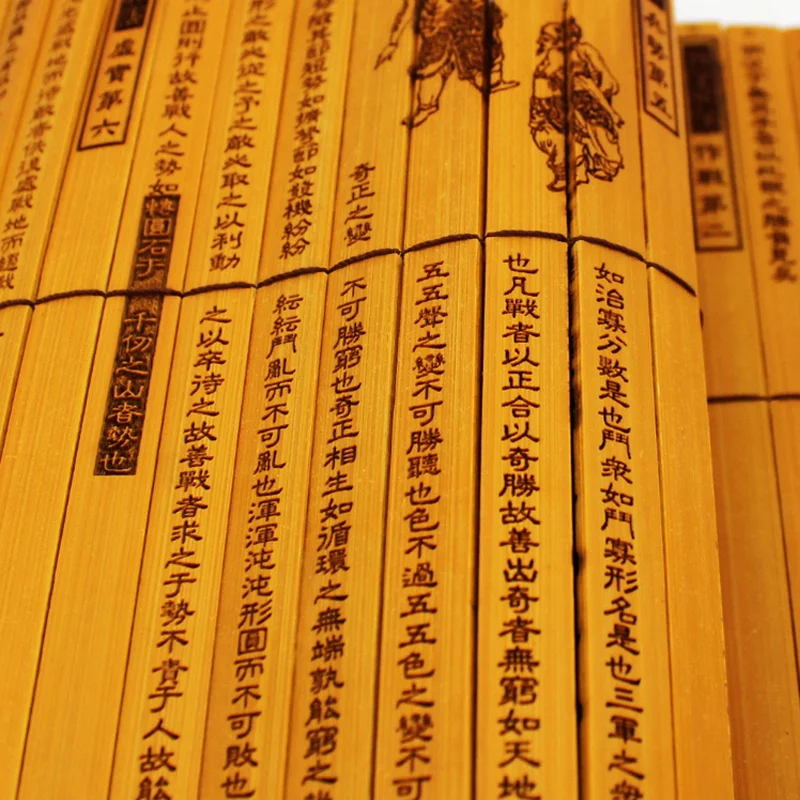 作戰第二
勢第五
如治寡分數是也鬥衆如鬥寡形名是也三軍之
也凡戰者以正合以奇勝故善出奇者無窮如天地
五五聲之變不可勝聽也色不過五五色之變不可
奇正之變不可勝窮也奇正相生如循環之無端孰能窮之
其節短勢如彍弩節如發機紛紛紜紜鬥亂而不可亂也渾渾沌沌形圓而不可敗也
形之敵必從之予之敵必取之以利動之以卒待之故善戰者求之于勢不責于人故能
圓則行故善戰人之勢如轉圓石于千仞之山者勢也
虛實第六
處戰地而待敵者佚後處戰地而趨戰